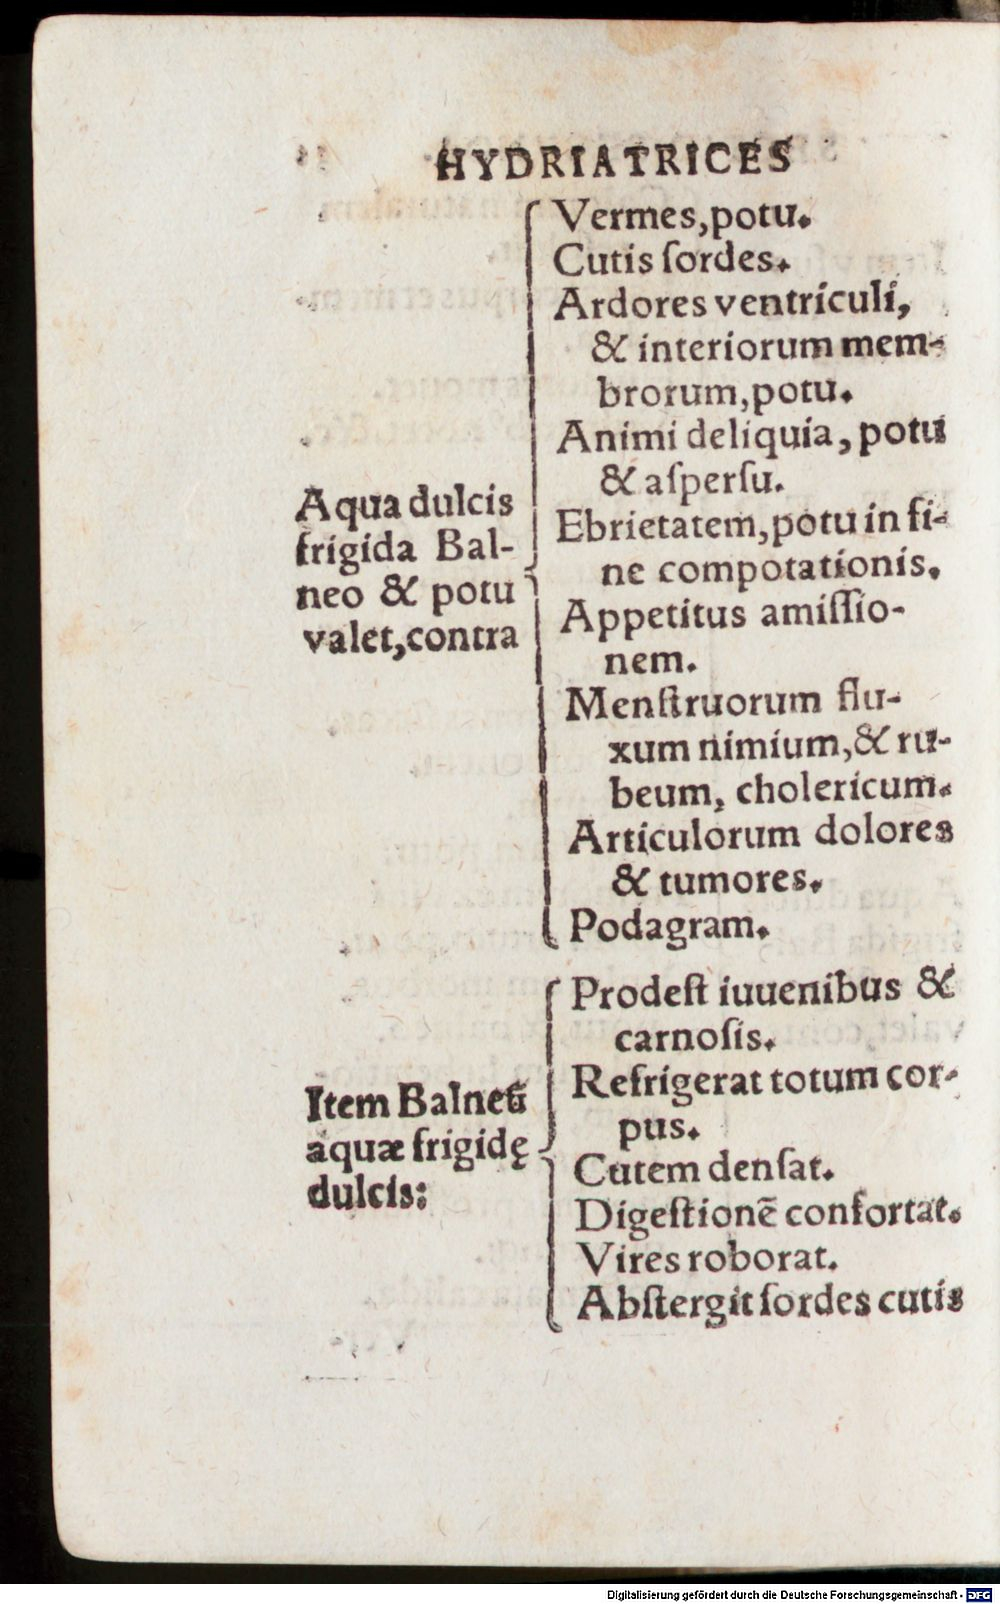 HYDRIATRICES
Aqua dulcis
frigida Bal-
neo & potu
valet,contra
Vermes,potu.
Cutis ſordes.
Ardores ventriculi,
& interiorum mem-
brorum,potu.
Animi deliquia, potu
& aſperſu.
Ebrietatem,potu in fi-
ne compotationis.
Appetitus amiſſio-
nem.
Menſtruorum flu-
xum nimium,& ru-
beum, cholericum.
Articulorum dolores
& tumores.
Podagram.
Item Balneũ
aquæ frigidę
dulcis:
Prodeſt iuuenibus &
carnoſis.
Refrigerat totum cor-
pus.
Cutem denſat.
Digeſtionē confortat.
Vires roborat.
Abſtergit ſordes cutis
Digitalisierung gefördert durch die Deutsche Forschungsgemeinschaft - DFG